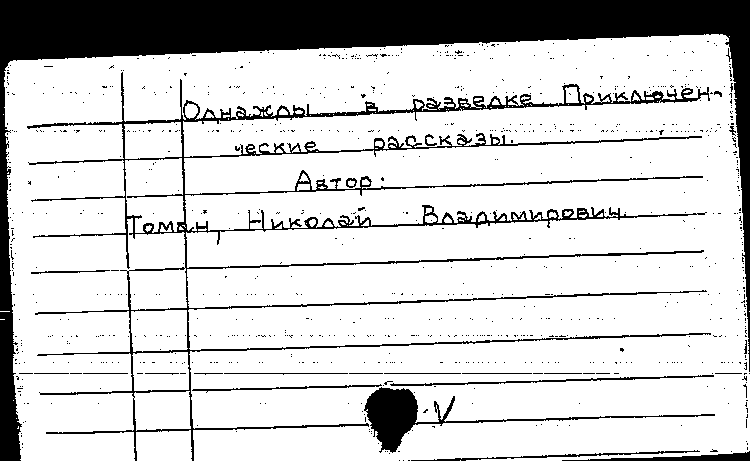 Однажды в разведке Приключен-
ческие рассказы.
Автор:
Томан, Николай Владимирович.
V